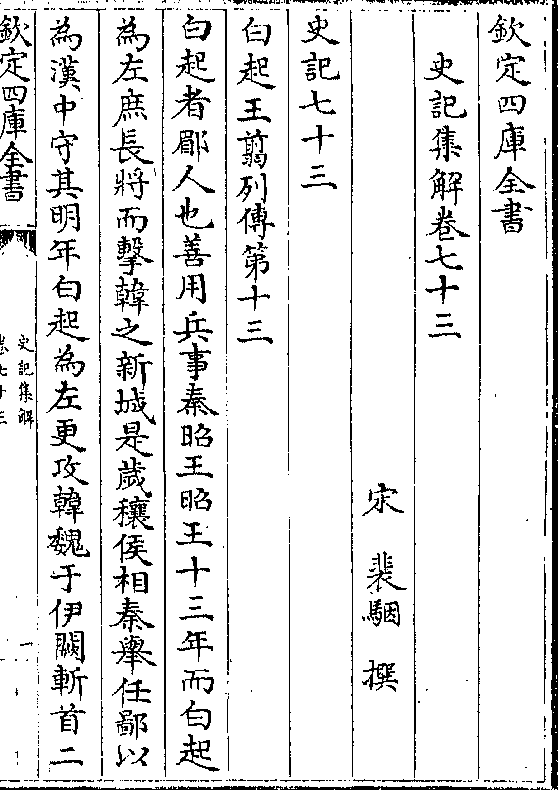 欽定四庫全書
史記集解卷七十三
宋 裴駰 撰
史記七十三
白起王翦列傳第十三
白起者郿人也善用兵事秦昭王昭王十三年而白起
為左庶長將而擊韓之新城是歲穰侯相秦舉任鄙以
為漢中守其明年白起為左更攻韓魏于伊闕斬首二
欽定四庫全書
史記集解
卷七十三
一